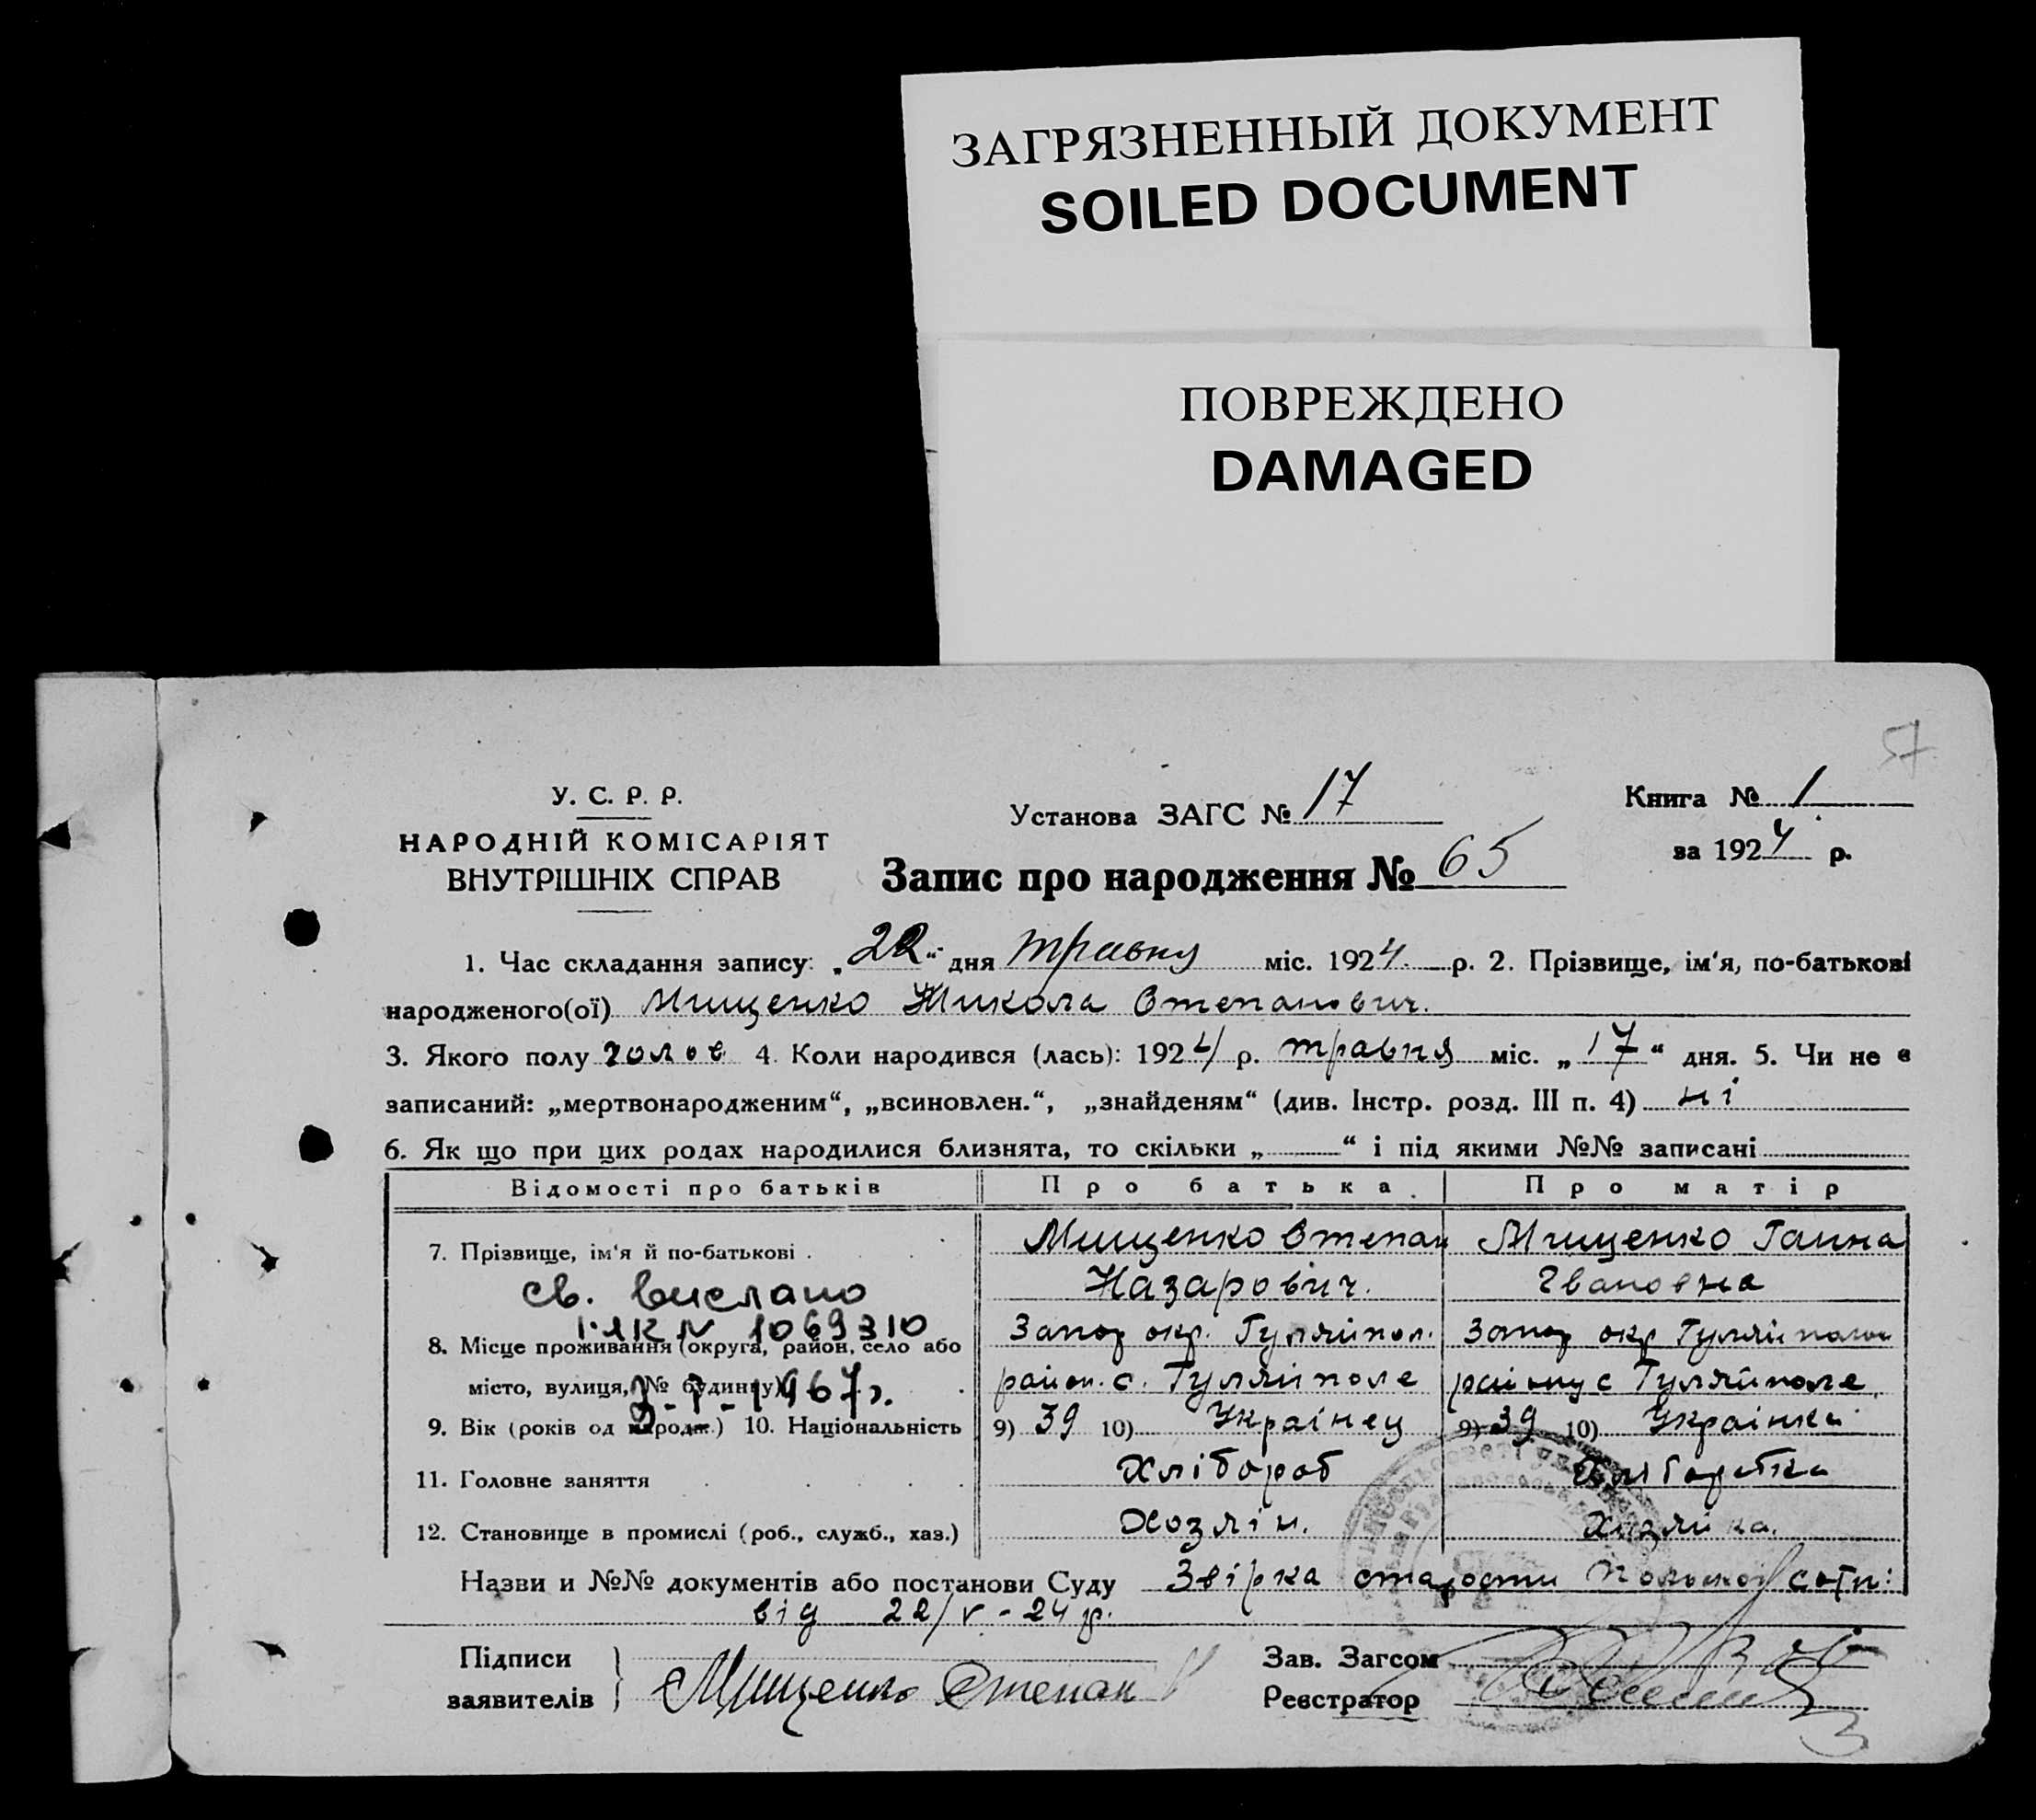 ЗАГРЯЗНЕННЫЙ ДОКУМЕНТ
SOILED DOCUMENT
ПОВРЕЖДЕНО
DAMAGED
57
У. С. Р. Р.
НАРОДНІЙ КОМІСАРІЯТ
ВНУТРІШНІХ СПРАВ
Установа ЗАГС № 17
Книга № 1
за 1924 р.
Запис про народження № 65
1. Час складання запису: „22“ дня травня міс. 1924 р. 2. Прізвище, ім'я, по-батькові
народженого(ої) Мищенко Микола Степанович.
3. Якого полу голов 4. Коли народився (лась): 1924 р. травня міс. „17“ дня. 5. Чи не є
записаний: „мертвонародженим“, „всиновлен.“, „знайденям“ (див. Інстр. розд. III п. 4) ні
6. Як що при цих родах народилися близнята, то скільки „ “ і під якими №№ записані
Відомості про батьків Про батька. Про матір
7. Прізвище, ім'я й по-батькові . Мищенко Степан Мищенко Ганна
Назарович. Івановна
св. выслано
ІЯК № 1069310
8. Місце проживання (округа, район, село або Запор окр. Гуляйпол. Запор окр Гуляйполь
місто, вулиця, № будинку) район. с. Гуляйполе району с Гуляйполе
1967г.
9. Вік (років од народж.) 10. Національність 9) 39 10) Украінец 9) 39 10) Украінка
11. Головне заняття Хлібороб Хліборобка
12. Становище в промислі (роб., служб., хаз.) Хозяін. Хозяйка.
Назви и №№ документів або постанови Суду Звірка старости сотн:
від 22/V - 24 р.
Підписи
заявителів Мищенко Степан
Зав. Загсом
Реєстратор